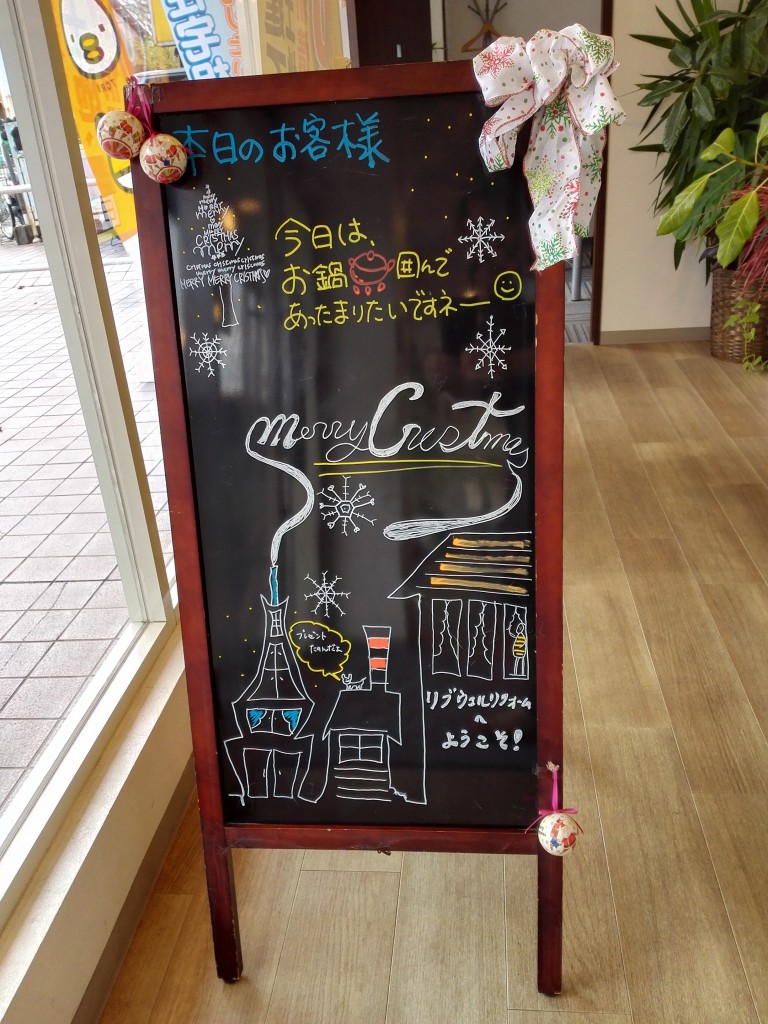 本日のお客様
merry
merry
merry
CRISTMAS
merry
MERRY MERRY CRISTMAS
今日は、
お鍋囲んで
あったまりたいですネー
merry Crustmas
プレゼント
たのんだよ
リブウェルリフォーム
へ
ようこそ!